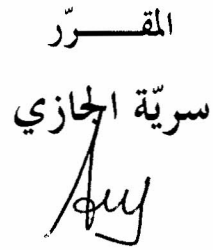 المقـــــرّر
سريّة الجازي